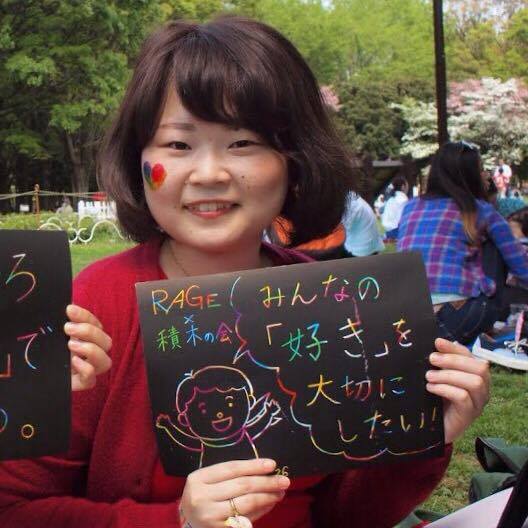 ろ
」で
。
RAGE
×
積木の会
みんなの
「好き」を
大切に
したい!
26